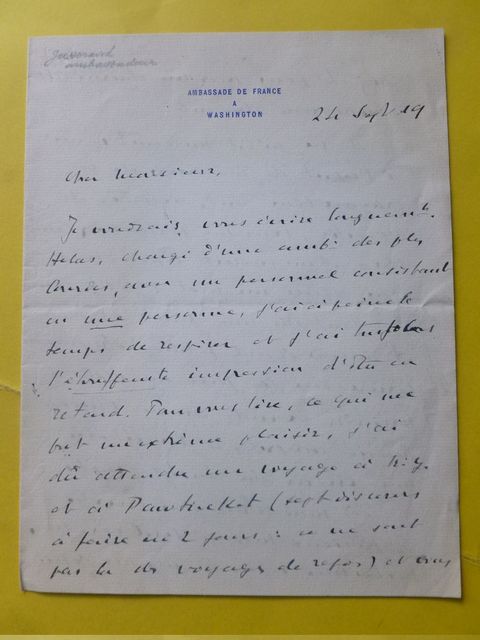 Jusserand
ambassadeur
AMBASSADE DE FRANCE
A
WASHINGTON
24 Sept 19
Cher Monsieur,
Je voudrais vous écrire longuement.
Helas, chargé d'une amb. des plus
lourdes, avec un personnel consistant
en une personne, j'ai à peine le
temps de respirer et j'ai
l'étouffante impression d'être en
retard. Pour vous lire, ce qui me
fut un extrême plaisir, j'ai
dû attendre un voyage à N.Y.
et à Pawtucket (sept discours
à faire en 2 jours : ce ne sont
pas là des voyages de repos) et